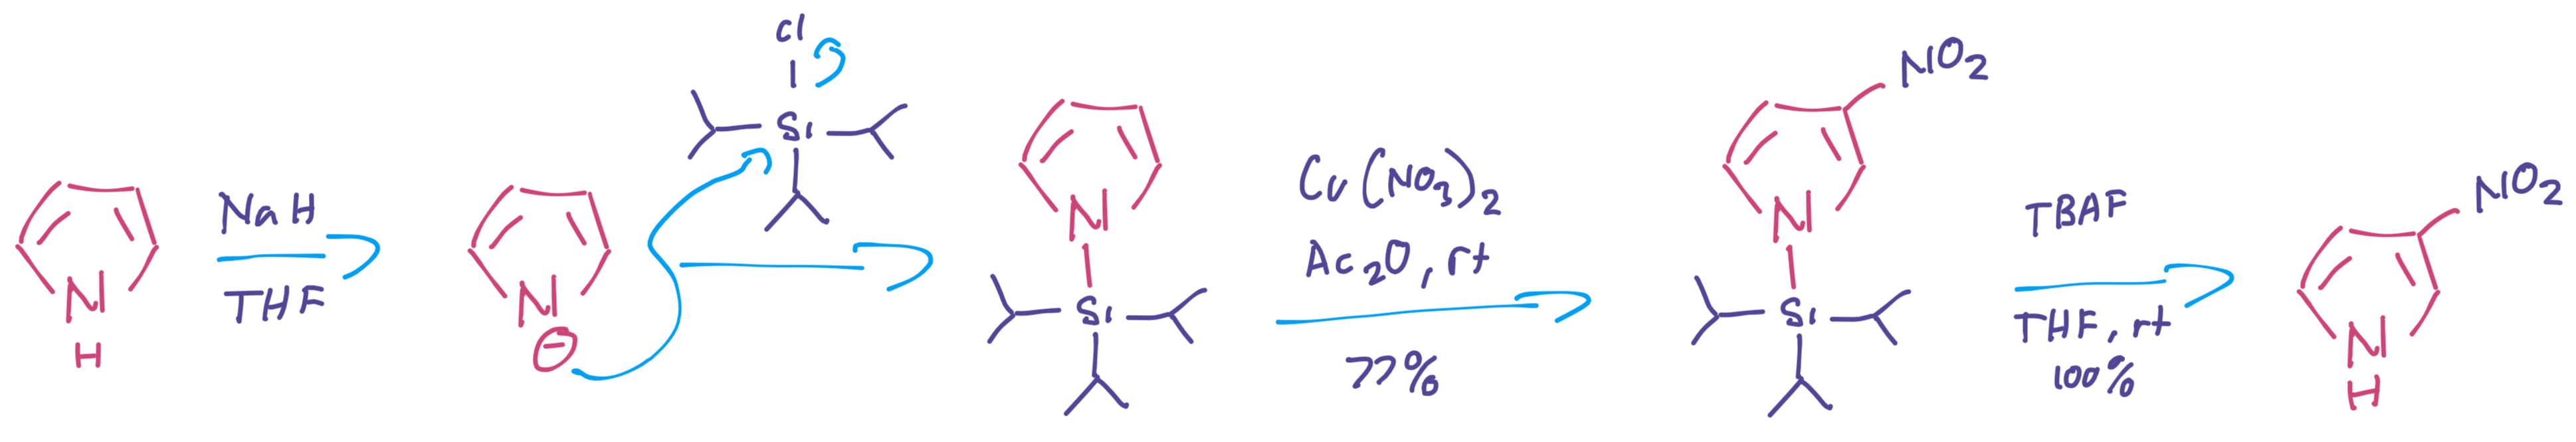 N
H
NaH
THF
N
⊖
Cl
Si
N
Si
Cu(NO3)2
Ac2O, rt
77%
NO2
N
Si
TBAF
THF, rt
100%
NO2
N
H